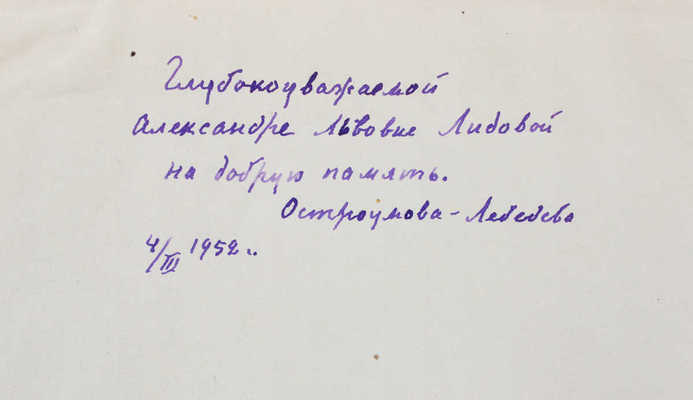 Глубокоуважаемой
Александре Львовне Либовой
на добрую память.
Остроумова-Лебедева
4/III 1952 г.